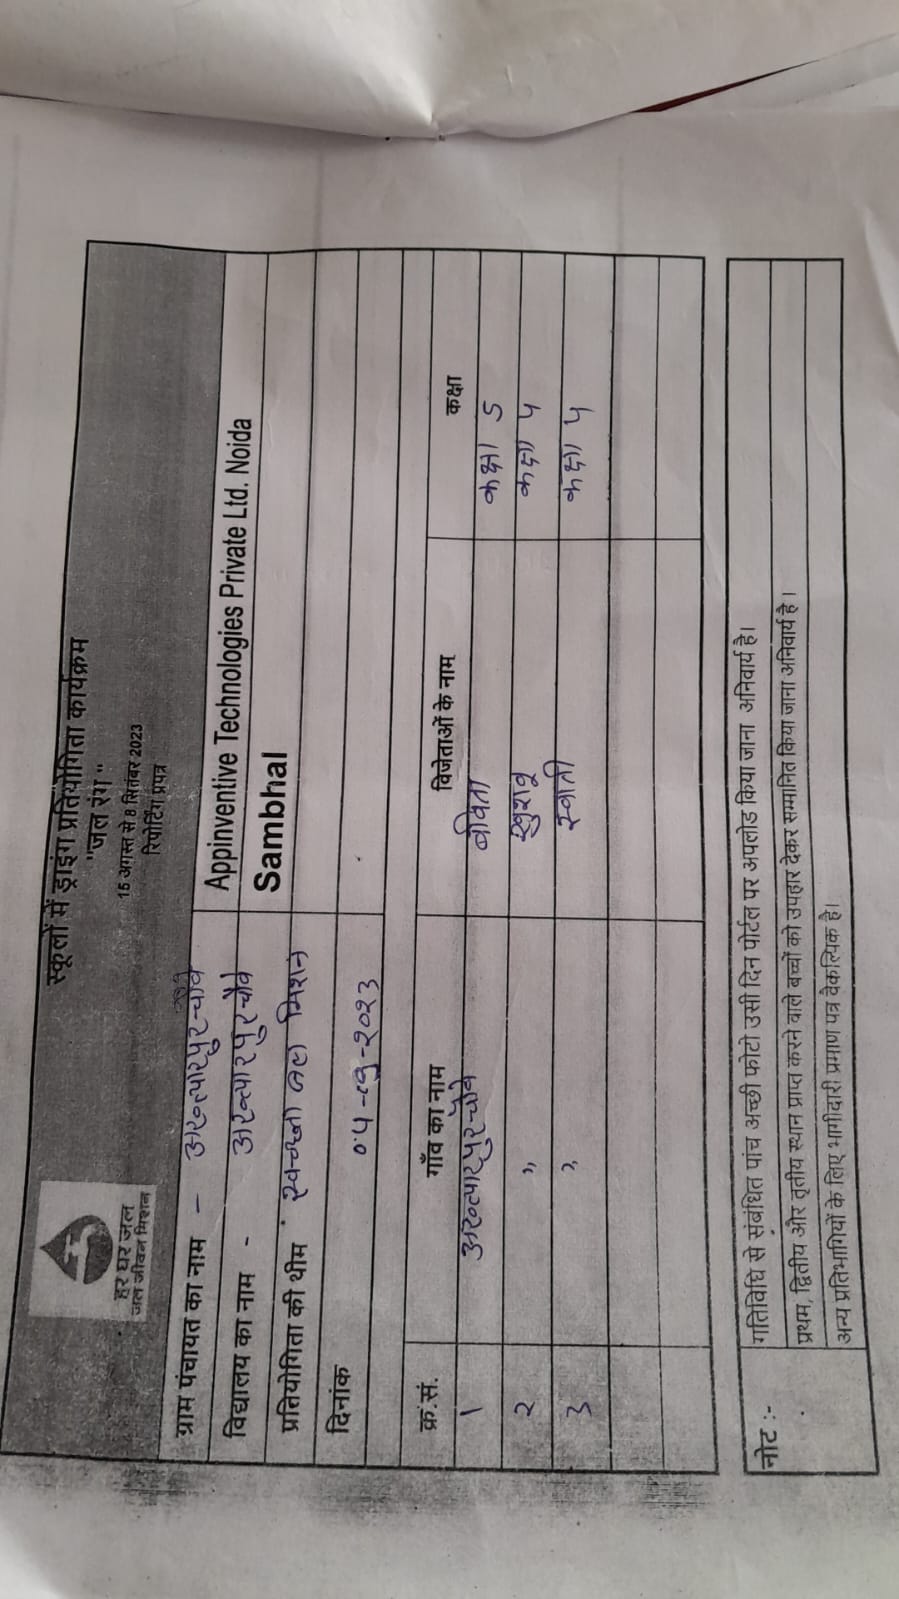 स्कूलों में ड्राइंग प्रतियोगिता कार्यक्रम
"जल रंग"
15 अगस्त से 8 सितंबर 2023
रिपोर्टिंग प्रपत्र
हर घर जल
जल जीवन मिशन
ग्राम पंचायत का नाम - अख्त्यारपुर चौबे Appinventive Technologies Private Ltd. Noida
विद्यालय का नाम - अख्त्यारपुर चौबे Sambhal
प्रतियोगिता की थीम जल मिशन
दिनांक -2023
क्र.सं. गाँव का नाम विजेताओं के नाम कक्षा
1 अख्त्यारपुर चौबे बबिता कक्षा 5
2 " खुशबू कक्षा
3 " स्वाती कक्षा
नोट :- गतिविधि से संबंधित पांच अच्छी फोटो उसी दिन पोर्टल पर अपलोड किया जाना अनिवार्य है।
प्रथम, द्वितीय और तृतीय स्थान प्राप्त करने वाले बच्चों को उपहार देकर सम्मानित किया जाना अनिवार्य है।
अन्य प्रतिभागियों के लिए भागीदारी प्रमाण पत्र वैकल्पिक है।